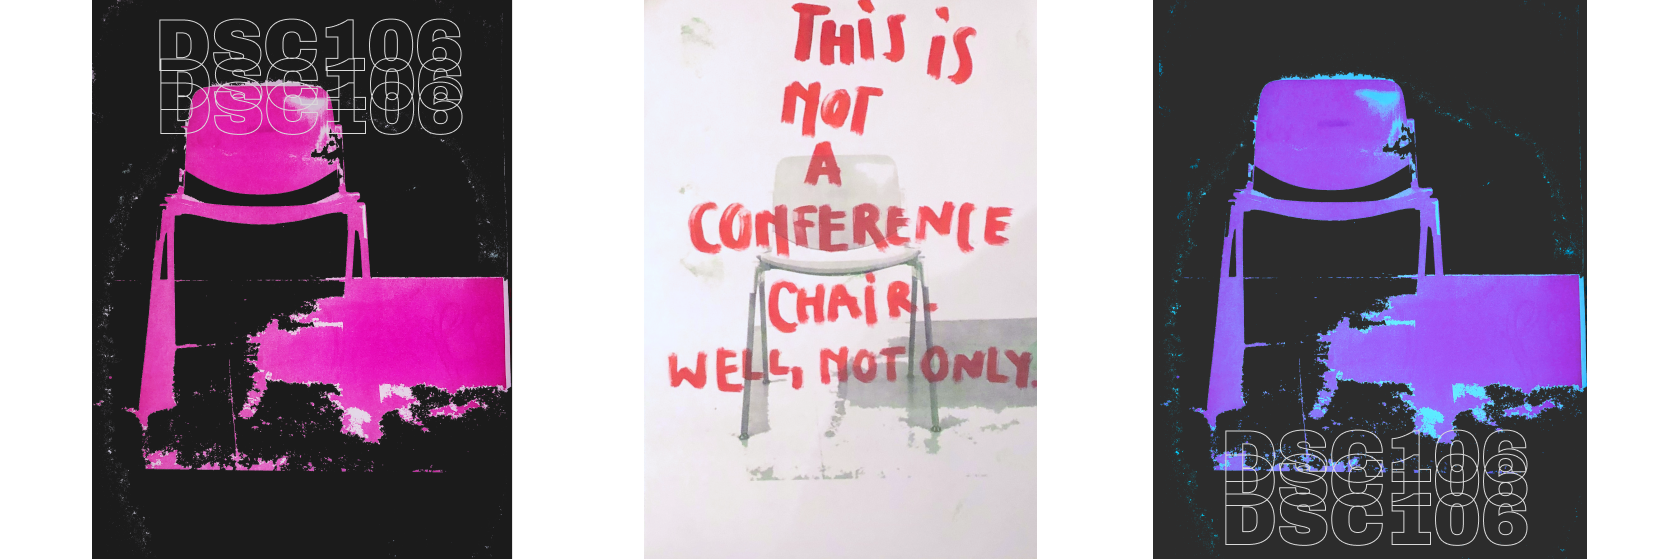 DSC106
DSC106
DSC106
THIS IS
NOT
A
CONFERENCE
CHAIR.
WELL, NOT ONLY.
DSC106
DSC106
DSC106